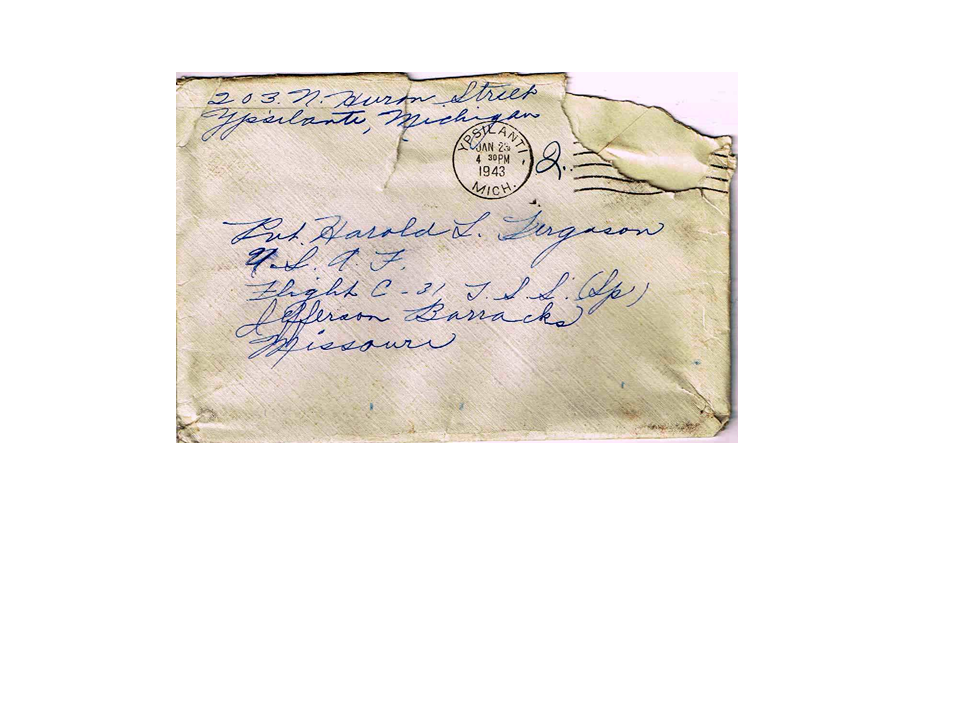 203. N. Huron Street
Ypsilanti, Michigan
YPSILANTI,
JAN 23
4 30 PM
1943
MICH.
2.
Pvt. Harold L. Fergason
U. S. A. F.
Flight C-31, T. S. S. (Sp)
Jefferson Barracks
Missouri